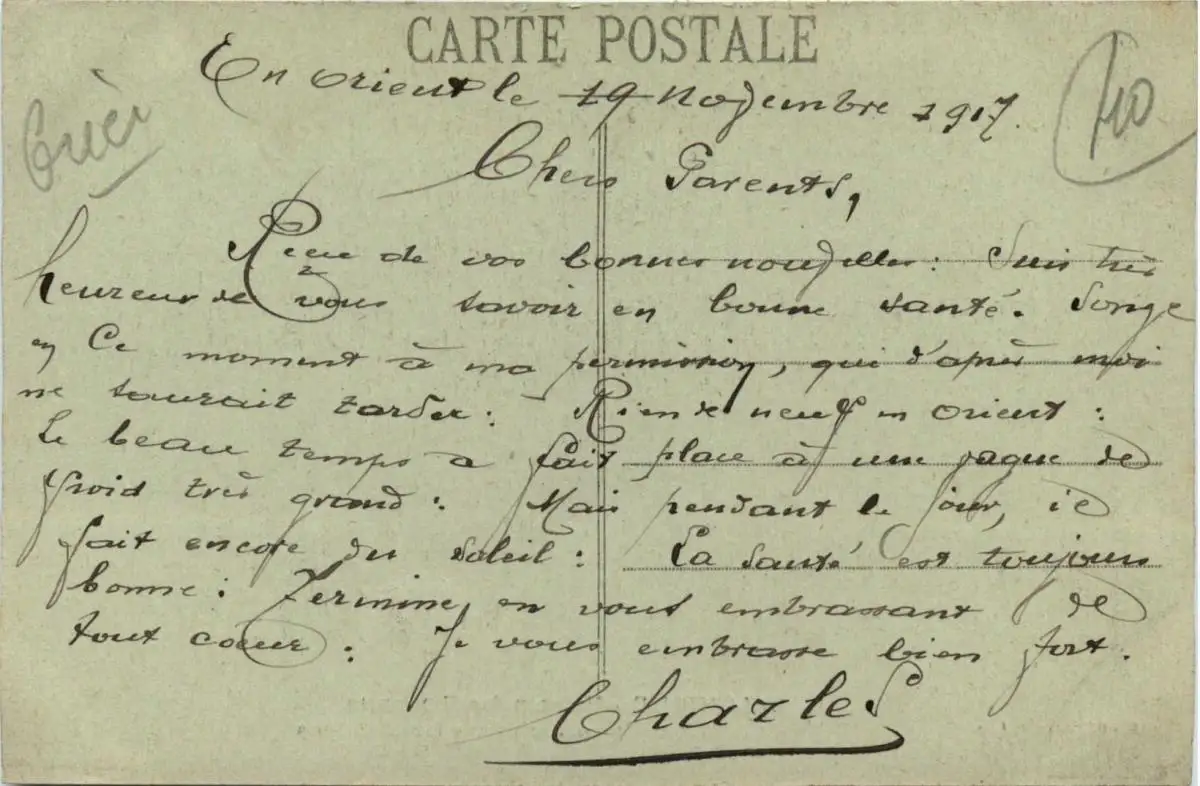 CARTE POSTALE
En orient le 19 novembre 1917.
40
Chers Parents,
Reçu de vos bonnes nouvelles : Suis très
heureux de vous savoir en bonne santé. Songe
en ce moment à ma permission, qui d'après moi
ne saurait tarder : Rien de neuf en orient :
Le beau temps a fait place à une vague de
froid très grand : Mais pendant le jour, il
fait encore du soleil : La santé est toujours
bonne : Termine, en vous embrassant de
tout coeur : Je vous embrasse bien fort.
Charles